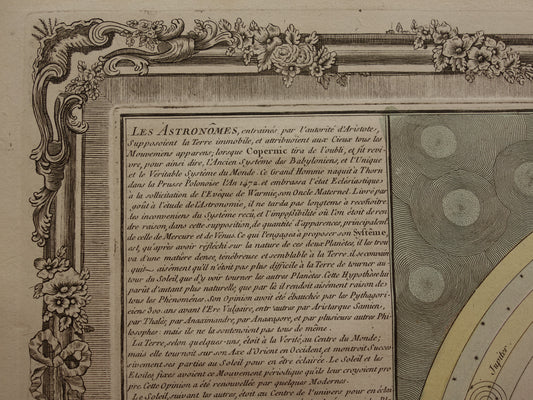 LES ASTRONÔMES, entraînés par l'autorité d'Aristote,
Supposoient la Terre immobile, et attribuoient aux Cieux tous les
Mouvemens apparens; lorsque Copernic tira de l'oubli, et fit revi-
vre, pour ainsi dire, l'Ancien Systême des Babyloniens, et l'Unique
et le Véritable Systême du Monde. Ce Grand Homme naquit à Thorn
dans la Prusse Polonoise l'An 1472. et embrassa l'état Eclésiastique
à la sollicitation de l'Evêque de Warmie, son Oncle Maternel. Livré par
goût à l'étude de l'Astronomie, il ne tarda pas longtems à recoñoitre
les inconveniens du Systême recu, et l'impossibilité où l'on étoit de ren-
dre raison, dans cette supposition, de quantité d'apparences, principalemt.
de celle de Mercure et de Vénus. Ce qui l'engagea à proposer son Systême,
est, qu'après avoir réfléchi sur la nature de ces deux Planètes, il les trou-
va d'une matière dense, ténébreuse et semblable à la Terre. il se convainquit
aisément qu'il n'étoit pas plus difficile à la Terre de tourner au-
tour du Soleil, que d'y voir tourner les autres Planètes. Cette Hypothèse lui
parût d'autant plus naturelle, que par là il rendoit aisément raison de
tous les Phénomènes. Son Opinion avoit été ébauchée par les Pythagori-
ciens 300. ans avant l'Ere Vulgaire, entr'autres par Aristarque Samien,
par Thalés, par Anaximandre, par Anaxagore, et par plusieurs autres Phi-
losophes: mais ils ne la soutenoient pas tous de même.
La Terre, selon quelques-uns, étoit à la Vérité, au Centre du Monde;
mais elle tournoit sur son Axe d'Orient en Occident, et montroit Succes-
sivement ses parties au Soleil pour en être éclairée. Le Soleil et les
Etoiles fixes avoient ce Mouvement périodique qu'ils leur croyoient pro-
pre. Cette Opinion a été renouvellée par quelques Modernes.
Le Soleil, suivant les autres, étoit au Centre de l'Univers pour en éclai
Jupiter